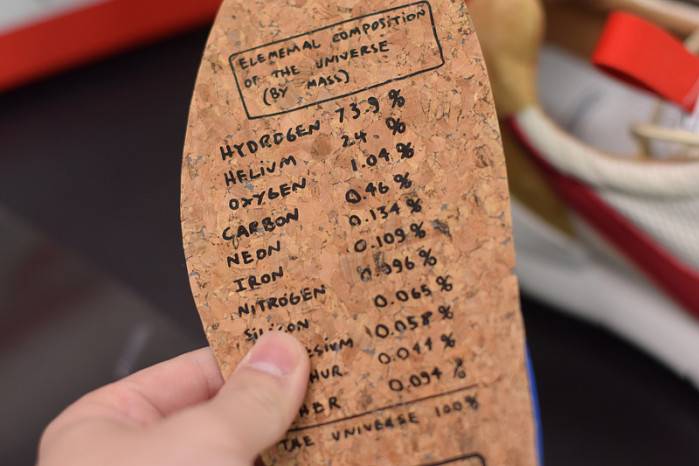 ELEMEMAL COMPOSITION
OF THE UNIVERSE
(BY MASS)
HYDROGEN 73.9 %
HELIUM 24. %
OXYGEN 1.04 %
CARBON 0.46 %
NEON 0.134 %
IRON 0.109 %
NITROGEN 0.096 %
SILICON 0.065 %
SIUM 0.058 %
HUR 0.044 %
HER 0.094 %
THE UNIVERSE 100%